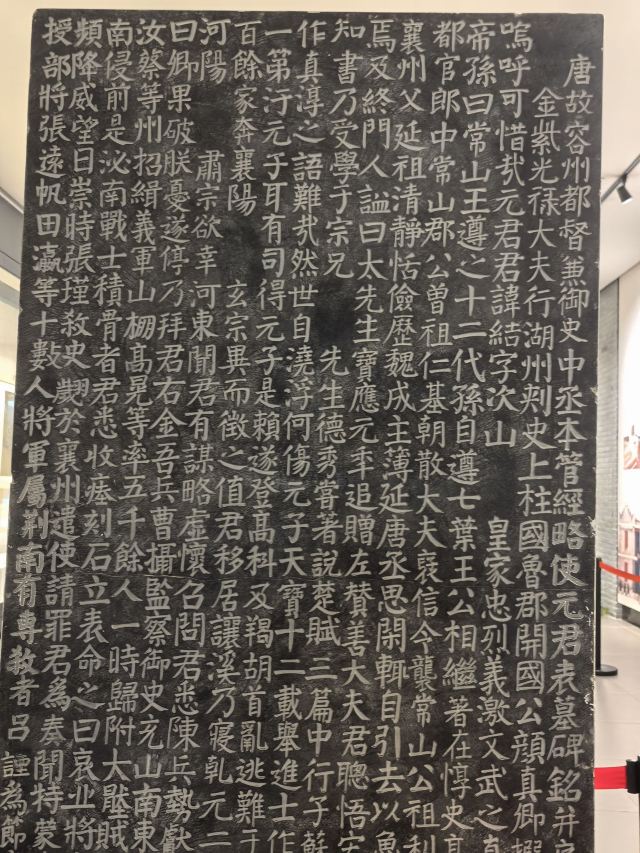 唐故容州都督兼御史中丞本管經略使元君表墓碑銘并序
金紫光祿大夫行湖州刾史上柱國魯郡開國公顏真卿撰
嗚呼可惜㢤元君君諱結字次山 皇家忠烈義激文武之直
帝孫曰常山王遵之十二代孫自遵七葉王公相繼著在惇史高
都官郎中常山郡公曾祖仁基朝散大夫襃信令襲常山公祖利
襄州父延祖清靜恬儉歷魏成主簿延唐丞思閑輒自引去以魯
焉及終門人謚曰太先生寶應元年追贈左贊善大夫君聰悟宏
知書乃受學于宗兄 先生德秀嘗著說楚賦三篇中行子蘇
作真淳之語難㢤然世自澆浮何傷元子天寶十二載舉進士作
一第汙元子耳有司得元子是賴遂登高科及羯胡首亂逃難于
百餘家奔襄陽 玄宗異而徵之值君移居讓溪乃寢乹元二
河陽 肅宗欲幸河東聞君有謀略虛懷召問君悉陳兵勢獻
曰卿果破朕憂遂停乃拜君右金吾兵曹攝監察御史充山南東
汝蔡等州招緝義軍山棚高晃等率五千餘人一時歸附大壓賊
南侵前是泌南戰士積骨者君悉收瘞刻石立表命之曰哀丘將
頻降威望日崇時張瑾殺史翽於襄州遣使請罪君為奏聞特蒙
授部將張遠帆田瀛等十數人將軍屬荊南有專殺者呂諲為節